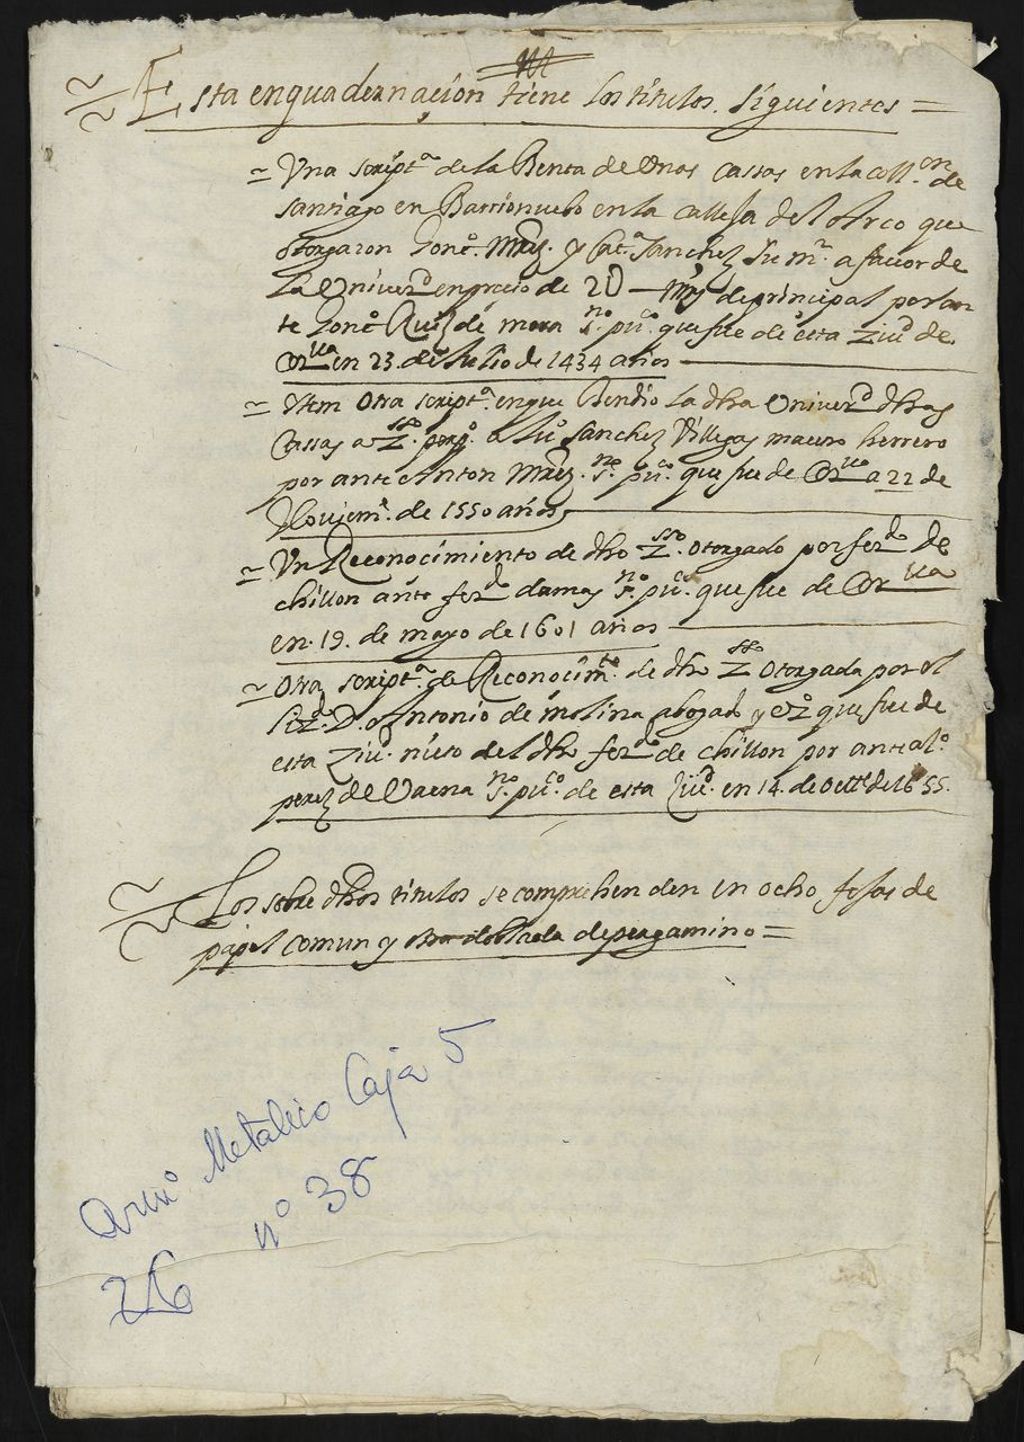 Esta enquadernaçion tiene los titulos siguientes =
~ Vna script.ª de la Benta de Vnas Cassas en la coll.on de
Santiago en Barrionuebo en la Calleja del Arco que
otorgaron Gonç.º Mrñz. y Cat.ª Sanchez su m.r a favor de
la Vniver.d en preçio de 2U — mrs de principal por an
te Gonç.º Ruiz de mora s.no pu.co que fue de esta Ziu.d de
Cor.ua en 23. de Julio de 1434 años
~ Ytem Otra script.ª en que Bendio la dha Vniver.d dhas
Cassas a Z.sso perp.º a Ju.º Sanchez Villegas maesro herrero
por ante Anton Mrñz. s.no pu.co que fue de Cor.ua a 22 de
Noviem.e de 1550 años
~ Vn Reconocimiento de dho Z.sso otorgado por fer.do de
chillon ante fer.do damas s.no pu.co que fue de Cor.ua
en. 19. de mayo de 1601 años
~ Otra script.ª de Reconocim.to de dho Z.sso Otorgada por el
Liz.do D. Antonio de molina abogado y v.º que fue de
esta Ziu.d nieto del dho fer.do de chillon por ante al.º
perez de Vaena s.no pu.co de esta Ziu.d en 14. de Oct.e de 1655.
Los sobre dhos titulos se comprehenden en ocho fojas de
papel comun y de pergamino =
Arm.º Metálico Caja 5
nº 38
26